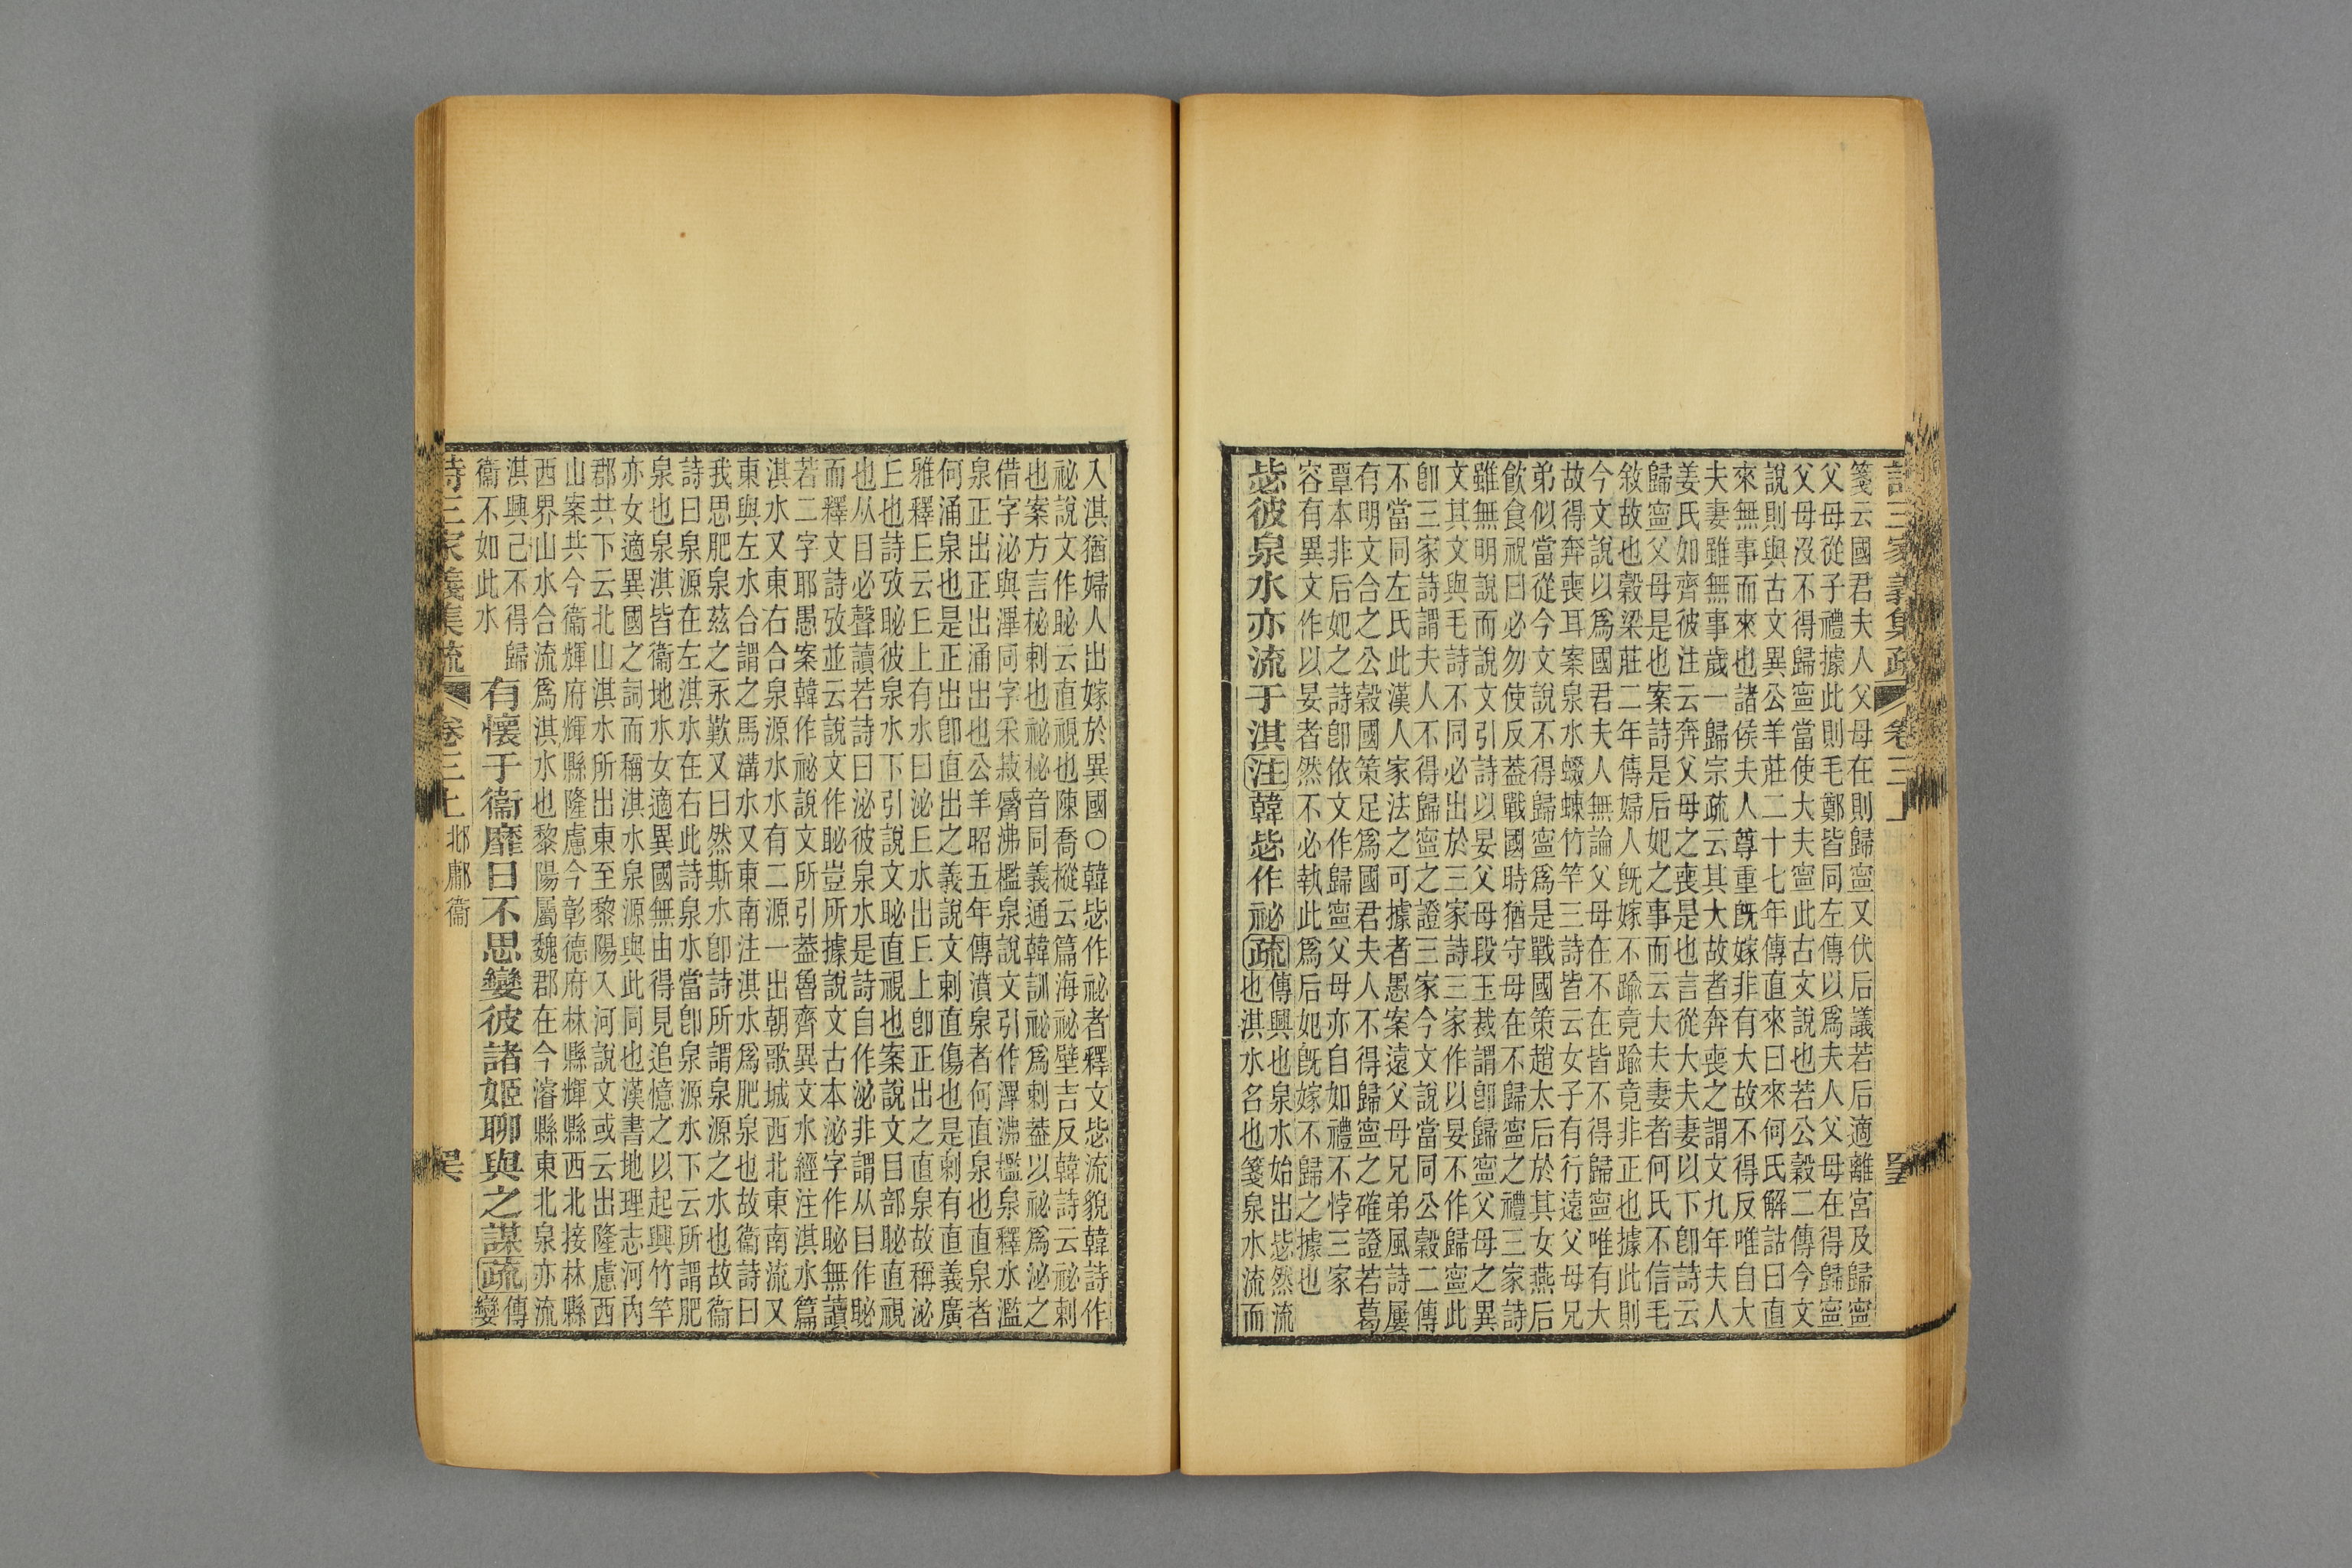 詩三家義集疏 卷三上
箋云國君夫人父母在則歸寧又伏后議若后適離宮及歸寧
父母從子禮據此則毛鄭皆同左傳以爲夫人父母在得歸寧
父母沒不得歸寧當使大夫寧此古文說也若公穀二傳今文
說則與古文異公羊莊二十七年傳直來曰來何氏解詁曰直
來無事而來也諸侯夫人尊重旣嫁非有大故不得反唯自大
夫妻雖無事歲一歸宗疏云其大故者奔喪之謂文九年夫人
姜氏如齊彼注云奔父母之喪是也言從大夫妻以下卽詩云
歸寧父母是也案詩是后妃之事而云大夫妻者何氏不信毛
敘故也穀梁莊二年傳婦人旣嫁不踰竟踰竟非正也據此則
今文說以爲國君夫人無論父母在不在皆不得歸寧唯有大
故得奔喪耳案泉水蝃蝀竹竿三詩皆云女子有行遠父母兄
弟似當從今文說不得歸寧爲是戰國策趙太后於其女燕后
飮食祝曰必勿使反葢戰國時猶守母在不歸寧之禮三家詩
雖無明說而說文引詩以晏父母段玉裁謂卽歸寧父母之異
文其文與毛詩不同必出於三家詩三家作以晏不作歸寧此
卽三家詩謂夫人不得歸寧之證三家今文說當同公穀二傳
不當同左氏此漢人家法之可據者愚案遠父母兄弟風詩屢
有明文合之公穀國策足爲國君夫人不得歸寧之確證若葛
覃本非后妃之詩卽依文作歸寧父母亦自如禮不悖三家
容有異文作以晏者然不必執此爲后妃旣嫁不歸之據也
毖彼泉水亦流于淇注韓毖作祕疏傳興也泉水始出毖然流
也淇水名也箋泉水流而
入淇猶婦人出嫁於異國○韓毖作祕者釋文毖流貌韓詩作
祕說文作䀣云直視也陳喬樅云篇海祕壁吉反韓詩云祕刺
也案方言柲刺也祕柲音同義通韓訓祕爲刺葢以祕爲泌之
借字泌與滭同字采菽觱沸檻泉說文引作滭沸檻泉釋水濫
泉正出正出涌出也公羊昭五年傳濆泉者何直泉也直泉者
何涌泉也是正出卽直出之義說文刺直傷也是刺有直義廣
雅釋丘云丘上有水曰泌丘水出丘上卽正出之直泉故稱泌
丘也詩攷䀣彼泉水下引說文䀣直視也案說文目部䀣直視
也从目必聲讀若詩曰泌彼泉水是詩自作泌非謂从目作䀣
而釋文詩攷並云說文作䀣豈所據說文古本泌字作䀣無讀
若二字耶愚案韓作祕說文所引葢魯齊異文水經注淇水篇
淇水又東右合泉源水水有二源一出朝歌城西北東南流又
東與左水合謂之馬溝水又東南注淇水爲肥泉也故衞詩曰
我思肥泉茲之永歎又曰然斯水卽詩所謂泉源之水也故衞
詩曰泉源在左淇水在右此詩泉水當卽泉源水下云所謂肥
泉也泉淇皆衞地水女適異國無由得見追憶之以起興竹竿
亦女適異國之詞而稱淇水泉源與此同也漢書地理志河內
郡共下云北山淇水所出東至黎陽入河說文或云出隆慮西
山案共今衞輝府輝縣隆慮今彰德府林縣輝縣西北接林縣
西界山水合流爲淇水也黎陽屬魏郡在今濬縣東北泉亦流
淇興己不得歸
衞不如此水
有懷于衞靡日不思孌彼諸姬聊與之謀疏傳
孌
詩三家義集疏 卷三上 邶鄘衞